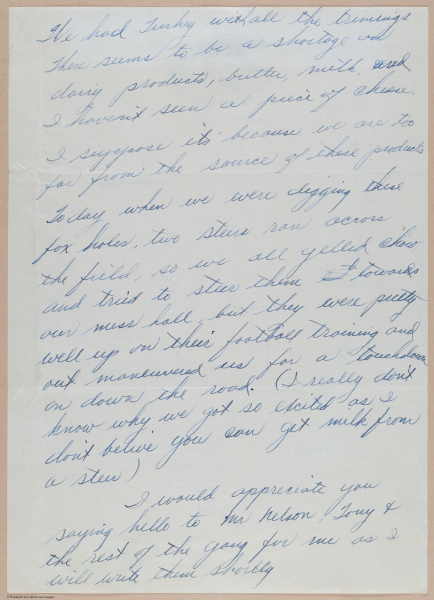 We had Turkey with all the trimings
There seems to be a shortage on
dairy products, butter, milk, and
I haven't seen a piece of cheese.
I suppose its because we are too
far from the source of these products
Today when we were digging these
fox holes, two steers ran across
the field, so we all yelled chow
and tried to steer them towards
our mess hall, but they were pretty
well up on their football training and
out maneuvered us for a touchdown
on down the road. (I really don't
know why we got so excited as I
don't belive you can get milk from
a steer)
I would appreciate you
saying hello to Mr Nelson, Tony &
the rest of the gang for me as I
will write them shortly